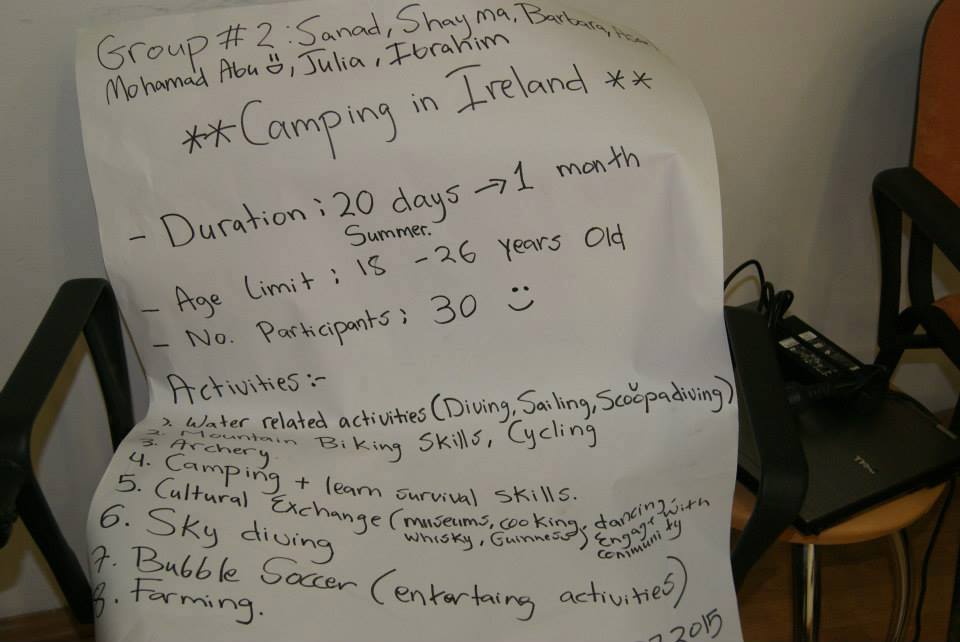 Group #2: Sanad, Shayma, Barbara,
Mohamad Abu, Julia, Ibrahim
**Camping in Ireland **
- Duration: 20 days → 1 month
Summer.
- Age limit: 18 - 26 years old
- No. Participants: 30 :)
Activities:-
1. Water related activities (Diving, Sailing, Scoopadiving)
2. Mountain Biking Skills, Cycling
3. Archery
4. Camping + learn survival skills.
5. Cultural Exchange (museums, cooking, dancing,
whisky, Guinness, Engage with
community
6. Sky diving
7. Bubble Soccer (entertaing activities)
8. Farming.
2015